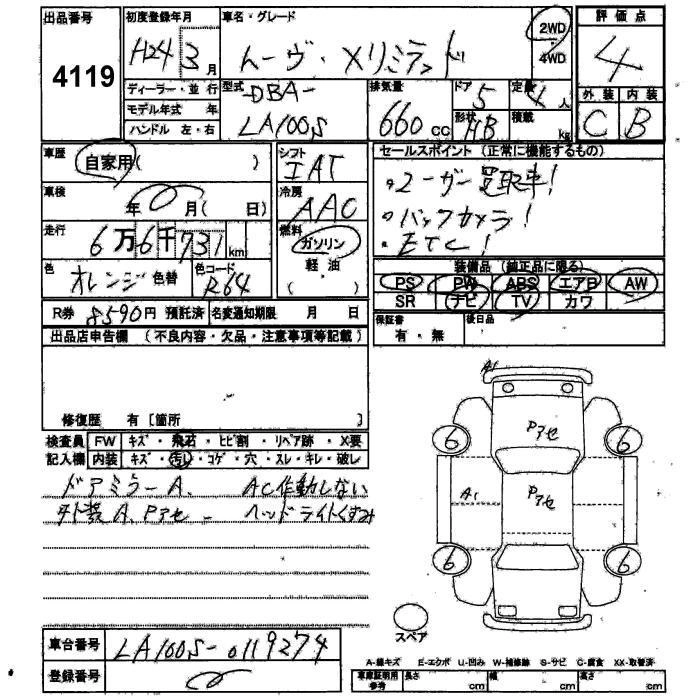 出品番号 初度登録年月 車名・グレード
4119 H24 3月 ムーヴ・Xリミテッド 2WD 4WD 評価点 4
ディーラー・並行 型式 DBA- 排気量 ドア 5 定員 4人 外装 内装
モデル年式 年 LA100S 660cc 形状 HB 積載 kg C B
ハンドル 左・右
車歴 自家用( ) シフト IAT セールスポイント(正常に機能するもの)
車検 年 月( 日) 冷房 AAC ・ユーザー買取車!
走行 6万6千731km 燃料 ガソリン ・バックカメラ!
色 オレンジ 色替 色コード R64 軽・油 ( ) ・ETC!
装備品(純正品に限る)
PS PW ABS エアB AW
SR ナビ TV カワ
R券 8590円 預託済 名変通知期限 月 日 保証書 有・無 後日品
出品店申告欄 (不良内容・欠品・注意事項等記載)
修復歴 有〔箇所 〕
検査員 FW キズ・飛石・ヒビ割・リペア跡・X要
記入欄 内装 キズ・汚し・コゲ・穴・スレ・キレ・破レ
ドアミラーA. AC作動しない
外装A.Pアセ ヘッドライトくすみ
A1
Pアセ
6 6
A1 Pアセ
6 6
スペア
車台番号 LA100S-0119274
登録番号
A-線キズ E-エクボ U-凹み W-補修跡 S-サビ C-腐食 XX-取替済
車庫証明用参考 長さ cm 幅 cm 高さ cm